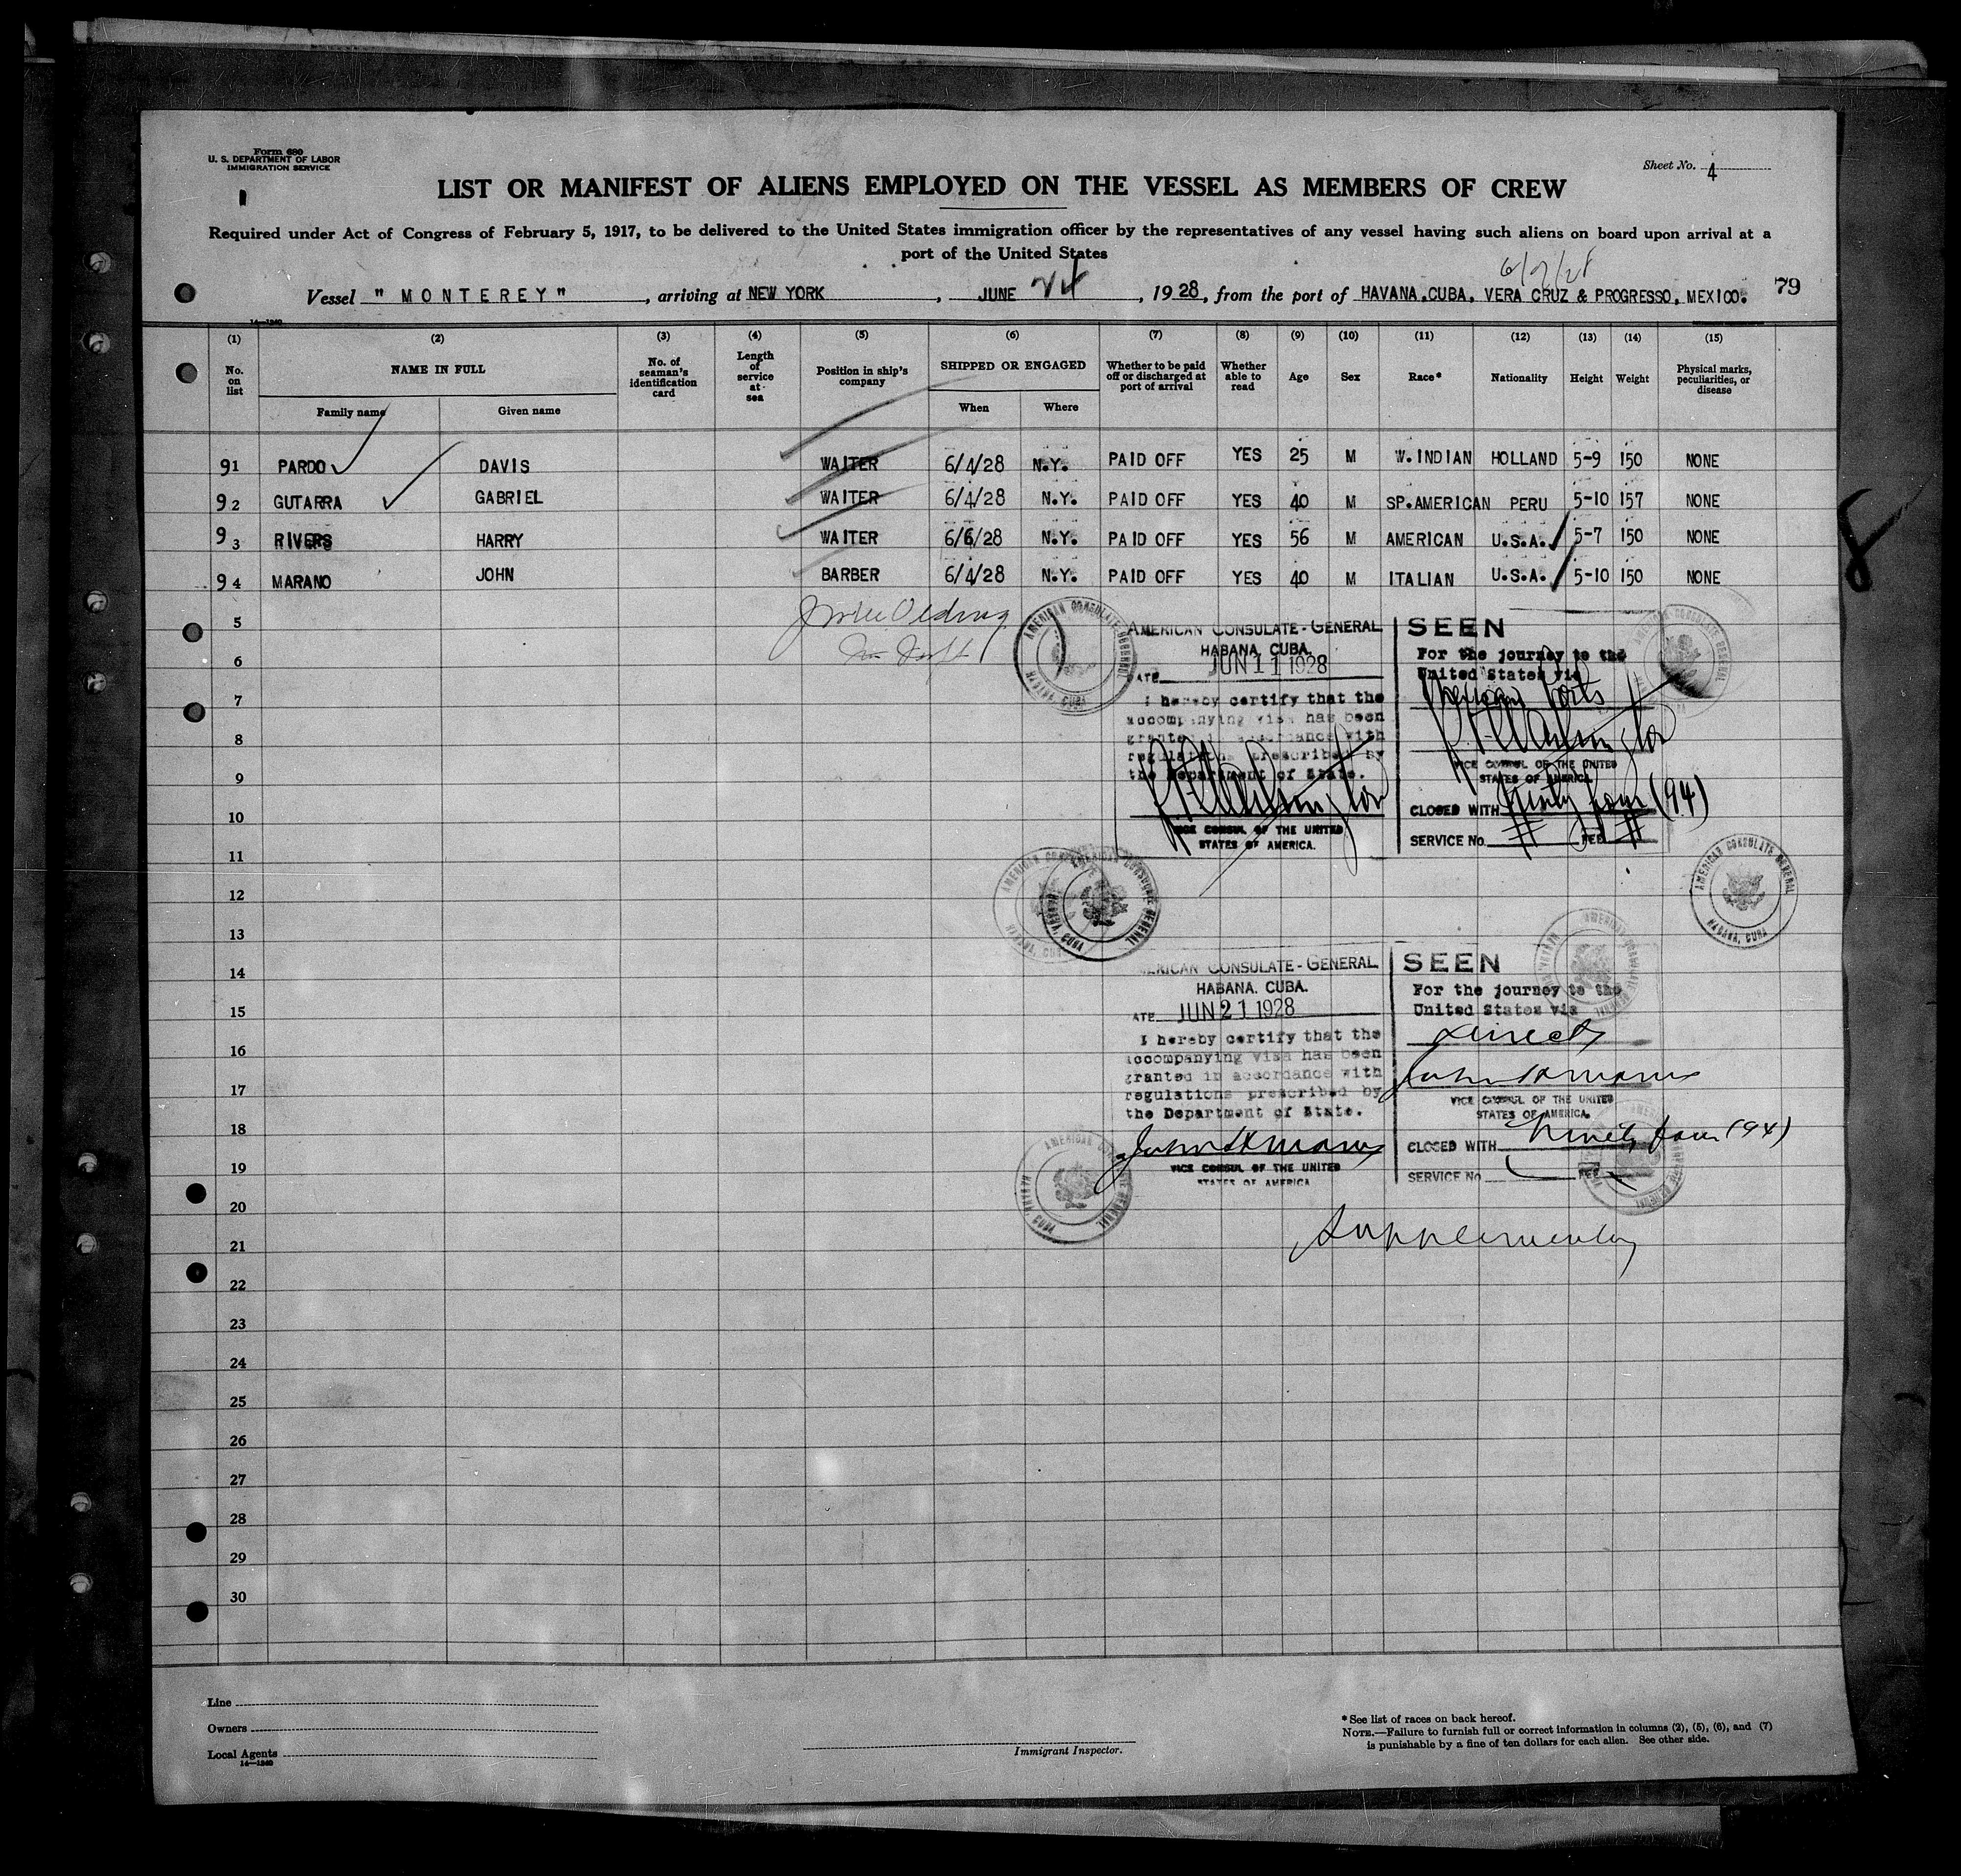 Form 680
U. S. DEPARTMENT OF LABOR
IMMIGRATION SERVICE
Sheet No. 4
LIST OR MANIFEST OF ALIENS EMPLOYED ON THE VESSEL AS MEMBERS OF CREW
Required under Act of Congress of February 5, 1917, to be delivered to the United States immigration officer by the representatives of any vessel having such aliens on board upon arrival at a
port of the United States
Vessel "MONTEREY", arriving at NEW YORK, JUNE 24, 1928, from the port of HAVANA, CUBA, VERA CRUZ & PROGRESSO, MEXICO. 79
14—1240
(1) (2) (3) (4) (5) (6) (7) (8) (9) (10) (11) (12) (13) (14) (15)
No. on list NAME IN FULL No. of seaman's identification card Length of service at sea Position in ship's company SHIPPED OR ENGAGED Whether to be paid off or discharged at port of arrival Whether able to read Age Sex Race* Nationality Height Weight Physical marks, peculiarities, or disease
Family name Given name When Where
91 PARDO DAVIS WAITER 6/4/28 N.Y. PAID OFF YES 25 M W.INDIAN HOLLAND 5-9 150 NONE
92 GUTARRA GABRIEL WAITER 6/4/28 N.Y. PAID OFF YES 40 M SP.AMERICAN PERU 5-10 157 NONE
93 RIVERS HARRY WAITER 6/6/28 N.Y. PAID OFF YES 56 M AMERICAN U.S.A. 5-7 150 NONE
94 MARANO JOHN BARBER 6/4/28 N.Y. PAID OFF YES 40 M ITALIAN U.S.A. 5-10 150 NONE
8
5
6
7
8
9
10
11
12
13
14
15
16
17
18
19
20
21
22
23
24
25
26
27
28
29
30
AMERICAN CONSULATE-GENERAL
HABANA, CUBA.
ATE JUN 11 1928
I hereby certify that the
accompanying visa has been
granted in accordance with
regulations prescribed by
the Department of State.
VICE CONSUL OF THE UNITED
STATES OF AMERICA.
SEEN
For the journey to the
United States via
Mexican Ports
VICE CONSUL OF THE UNITED
STATES OF AMERICA.
CLOSED WITH Ninety four (94)
SERVICE No. FEE
AMERICAN CONSULATE GENERAL
HABANA, CUBA
AMERICAN CONSULATE-GENERAL
HABANA. CUBA.
ATE JUN 21 1928
I hereby certify that the
accompanying visa has been
granted in accordance with
regulations prescribed by
the Department of State.
VICE CONSUL OF THE UNITED
STATES OF AMERICA
SEEN
For the journey to the
United States via
Direct
VICE CONSUL OF THE UNITED
STATES OF AMERICA.
CLOSED WITH Ninety four (94)
SERVICE No FEE
Supplementary
Line
Owners
Local Agents
14—1240
Immigrant Inspector.
*See list of races on back hereof.
NOTE.—Failure to furnish full or correct information in columns (2), (5), (6), and (7)
is punishable by a fine of ten dollars for each alien. See other side.